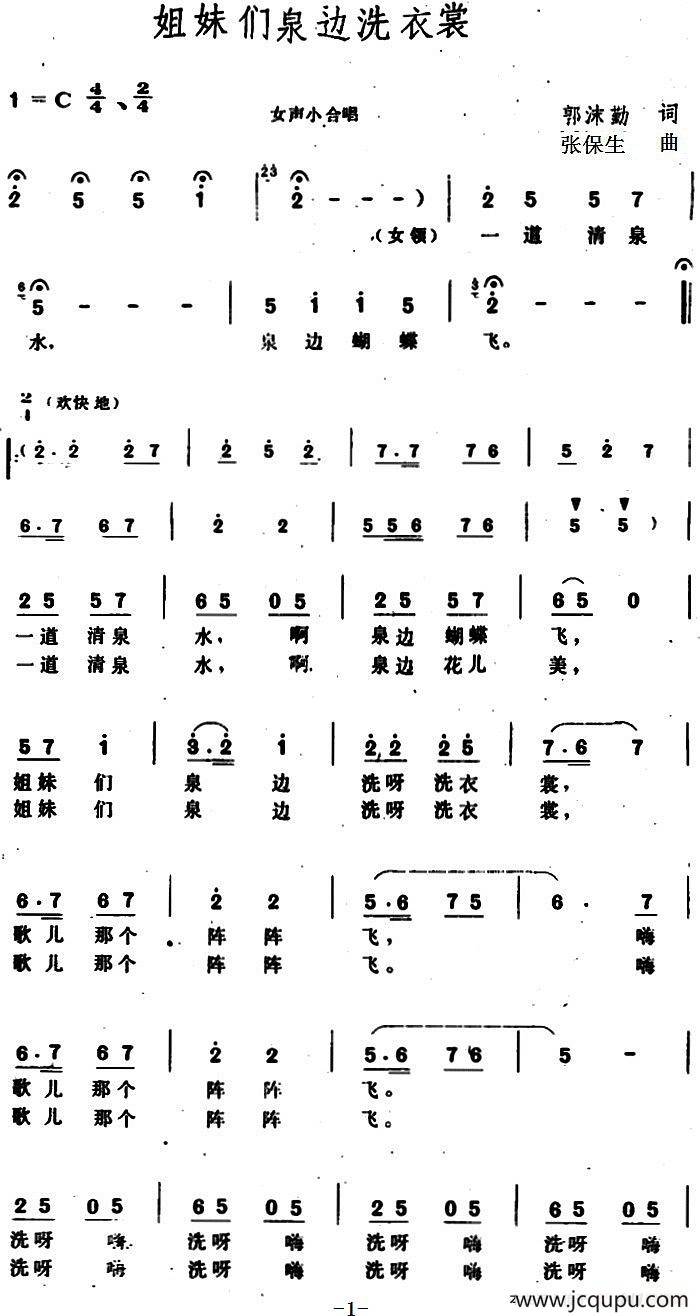 姐妹们泉边洗衣裳
1=C 4/4、2/4
女声小合唱
郭沫勤 词
张保生 曲
2 5 5 1 | 2 3 2 - - - ) | 2 5 5 7
(女领) 一道清泉
6 5 - - - | 5 1 1 5 | 3 2 - - - ||
水, 泉边蝴蝶 飞。
2/4 (欢快地)
||: (2·2 2 7 | 2 5 2 | 7·7 7 6 | 5 2 7 |
6·7 6 7 | 2 2 | 5 5 6 7 6 | 5 5 ) |
2 5 5 7 | 6 5 0 5 | 2 5 5 7 | 6 5 0 |
一道 清泉 水, 啊 泉边 蝴蝶 飞,
一道 清泉 水, 啊 泉边 花儿 美,
5 7 1 | 3·2 1 | 2 2 2 5 | 7·6 7 |
姐妹 们 泉 边 洗呀 洗衣 裳,
姐妹 们 泉 边 洗呀 洗衣 裳,
6·7 6 7 | 2 2 | 5·6 7 5 | 6· 7 |
歌儿 那个 阵阵 飞, 嗨
歌儿 那个 阵阵 飞。 嗨
6·7 6 7 | 2 2 | 5·6 7 6 | 5 - |
歌儿 那个 阵阵 飞。
歌儿 那个 阵阵 飞。
2 5 0 5 | 6 5 0 5 | 2 5 0 5 | 6 5 0 5 |
洗呀 嗨 洗呀 嗨 洗呀 嗨 洗呀 嗨
洗呀 嗨 洗呀 嗨 洗呀 嗨 洗呀 嗨
-1-
www.jcqupu.com